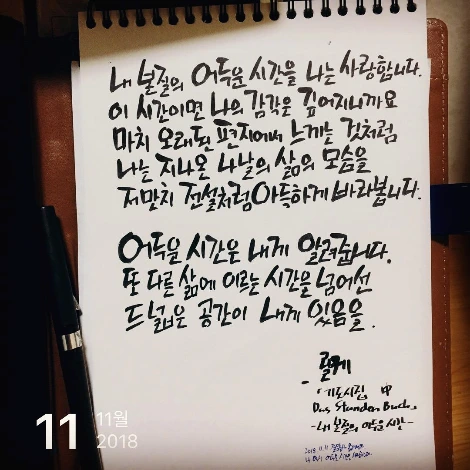 내 본질의 어두운 시간을 나는 사랑합니다.
이 시간이면 나의 감각은 깊어지니까요
마치 오래된 편지에서 느끼는 것처럼
나는 지나온 나날의 삶의 모습을
저만치 전설처럼 아득하게 바라봅니다.
어두운 시간은 내게 알려줍니다.
또 다른 삶에 이르는 시간을 넘어선
드넓은 공간이 내게 있음을.
- 릴케
기도시집 中
Das Stunden Buch
- 내 본질의 어두운 시간 -
2018. 11. 11
11 11월
2018